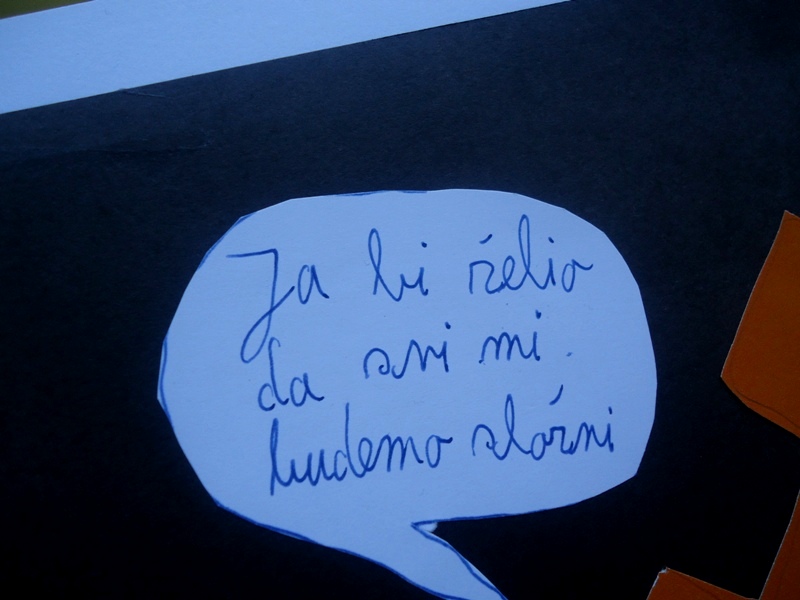 Ja bi želio
da svi mi
budemo složni